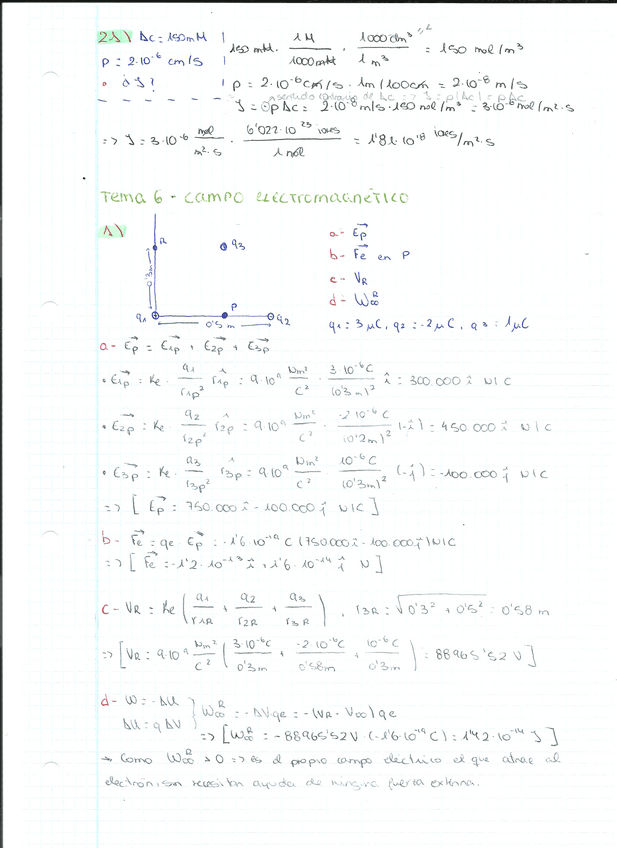 21) Δc = 150 mM | 150 mM · 1M/1000 mM · 1000 dm³/1 m³ = 150 mol/m³
P = 2·10⁻⁶ cm/s
¿J? | P = 2·10⁻⁶ cm/s · 1m/100cm = 2·10⁻⁸ m/s
J = ⊖pΔc = 2·10⁻⁸ m/s · 150 mol/m³ = 3·10⁻⁶ mol/m²·s
=> J = 3·10⁻⁶ mol/m²·s · 6'022·10²³ iones/1 mol = 1'81·10¹⁸ iones/m²·s
Tema 6 - CAMPO ELECTROMAGNÉTICO
1)
R
q3
0'3m
q1
P
q2
0'5 m
a- Ep→
b- Fe→ en P
c- VR
d- W∞ᴿ
q1 = 3 μC, q2 = -2 μC, q3 = 1 μC
a- Ep→ = E1p→ + E2p→ + E3p→
• E1p→ = Ke · q1/r1p² r̂1p = 9·10⁹ Nm²/C² · 3·10⁻⁶C/(0'3m)² î = 300.000 î N/C
• E2p→ = Ke · q2/r2p² r̂2p = 9·10⁹ Nm²/C² · -2·10⁻⁶C/(0'2m)² (-î) = 450.000 î N/C
• E3p→ = Ke · q3/r3p² r̂3p = 9·10⁹ Nm²/C² · 10⁻⁶C/(0'3m)² (-ĵ) = -100.000 ĵ N/C
=> [Ep→ = 750.000 î - 100.000 ĵ N/C]
b- Fe→ = qe · Ep→ = -1'6·10⁻¹⁹ C (750.000 î - 100.000 ĵ) N/C
=> [Fe→ = -1'2·10⁻¹³ î + 1'6·10⁻¹⁴ ĵ N]
c- VR = Ke (q1/r1R + q2/r2R + q3/r3R), r3R = √0'3² + 0'5² = 0'58 m
=> [VR = 9·10⁹ Nm²/C² (3·10⁻⁶C/0'3m + -2·10⁻⁶C/0'58m + 10⁻⁶C/0'3m) = 88965'52 V]
d- W = -ΔU
ΔU = q ΔV } W∞ᴿ = -ΔV qe = -(VR - V∞) qe
=> [W∞ᴿ = -88965'52V · (-1'6·10⁻¹⁹ C) = 1'42·10⁻¹⁴ J]
→ Como W∞ᴿ > 0 => es el propio campo eléctrico el que atrae al
electrón, sin necesitar ayuda de ninguna fuerza externa.